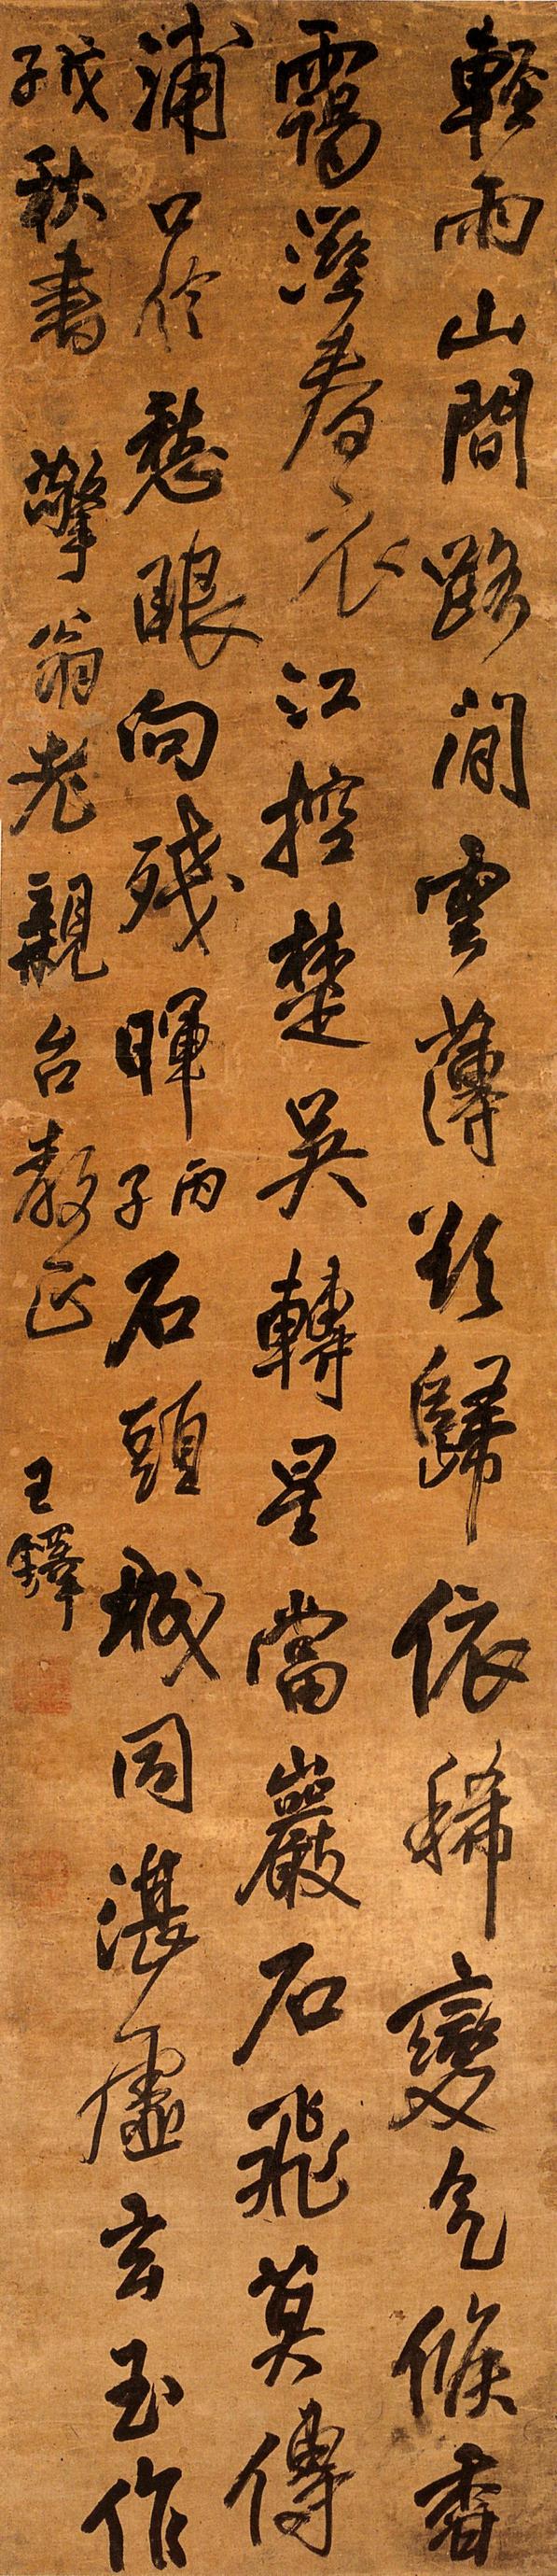 輕雨山間路閒雲薄欲歸依稀變气候香
靄溼春衣江控楚吳轉星當巖石飛莫傳
浦口信愁眼向殘暉丙子石頭城同湛虛玄玉作
戊子秋書 擎翁老親台教正 王鐸